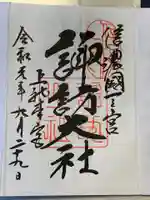 信濃國一宮
諏訪大社
下社秋宮
令和元年六月二十九日